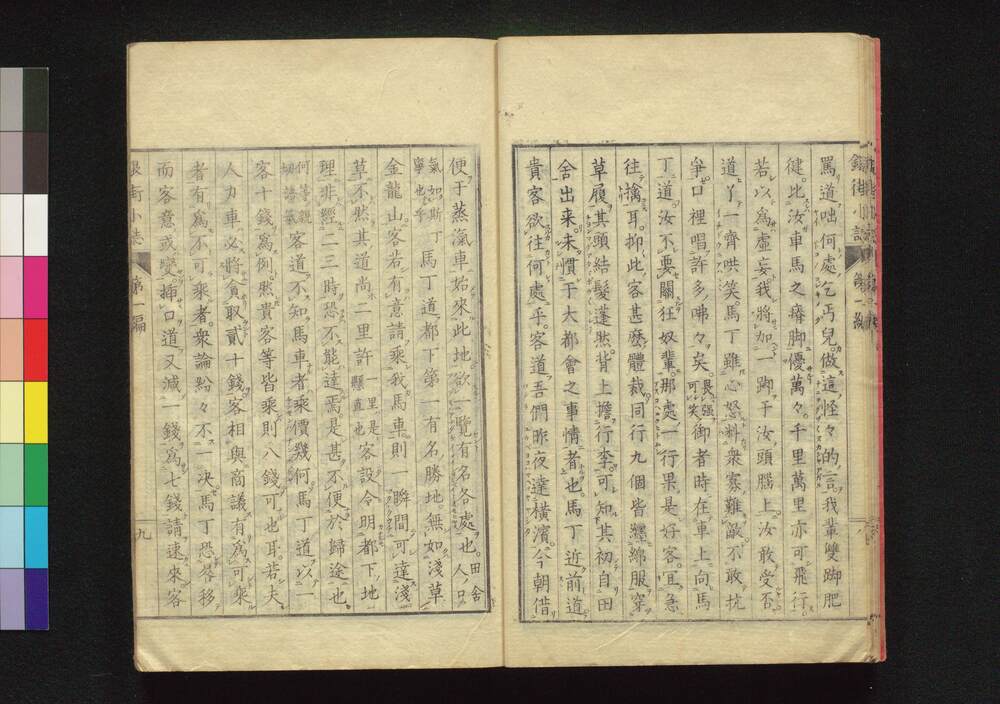 罵道咄何處乞丐兒做這怪々的言我輩雙脚肥
健比汝車馬之瘠脚優萬々千里萬里亦可飛行
若以爲虛妄我將加一脚于汝頭腦上汝敢受否
道丫一齊哄笑馬丁雖心怒料衆寡難敵不敢抗
爭口裡唱許多咈々矣畏强可笑御者時在車上向馬
丁道汝不要關狂奴輩那處一行果是好客宜急
往擒耳抑此客甚麼體裁同行九個皆纒綿服穿
草履其頭結髮蓬然背上擔行李可知其初自田
舍出来未慣于大都會之事情者也馬丁近前道
貴客欲往何處乎客道吾們昨夜達橫濱今朝借
便于蒸滊車始來此地欲一覽有名各處也田舍人口
氣如斯丁寧也乎馬丁道都下第一有名勝地無如淺草
金龍山客若有意請乘我馬車則一瞬間可達淺
草不然其道尚二里許一里是縣直也客設令明都下地
理非經二三時恐不能達焉是甚不便於歸途也
何等親切諸蕺客道不知馬車者乘價幾何馬丁道以一
客十錢爲例然貴客等皆乘則八錢可也耳若夫
人力車必將貪取貳十錢客相與商議有爲可乘
者有爲不可乘者衆論紛々不一决馬丁恐客移
而客意或變揷口道又減一錢爲七錢請速來客
銀街小誌 第一編 九